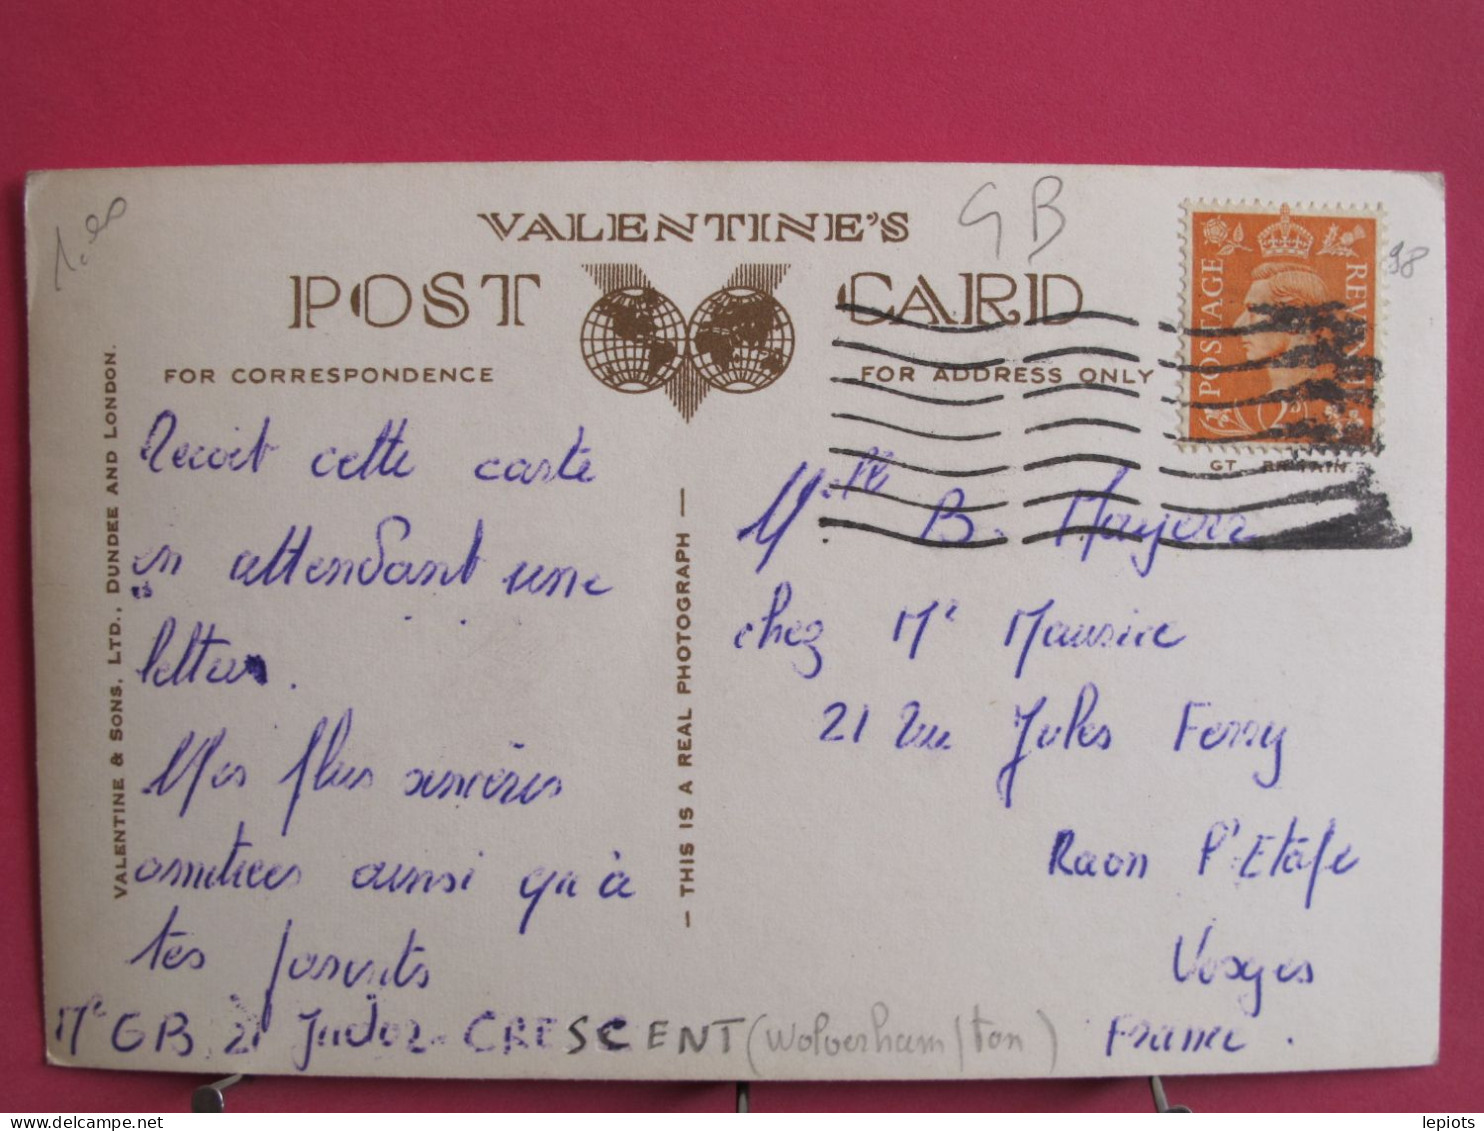 1.00
GB
98
VALENTINE'S
POST CARD
FOR CORRESPONDENCE
FOR ADDRESS ONLY
POSTAGE REVENUE
GT. BRITAIN
VALENTINE & SONS. LTD., DUNDEE AND LONDON.
— THIS IS A REAL PHOTOGRAPH —
Recoit cette carte
en attendant une
lettre.
Mes plus sincères
amitiées ainsi qu'à
tes parents
Mr GB 21 Tudor CRESCENT (Wolverhampton)
Mlle B.
chez Mr Maurice
21 Rue Jules Ferry
Raon l'Etape
Vosges
France.
lepiots
delcampe.net